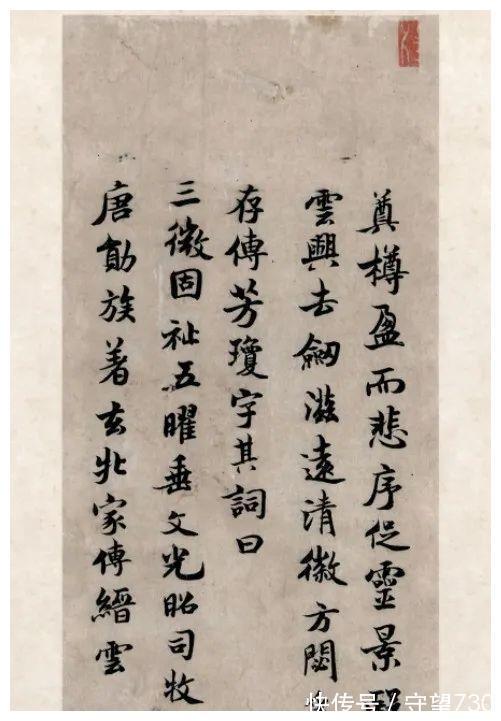 奠樽盈而悲序促靈景
雲興去劒滋遠清徽方閟
存傳芳瓊宇其詞曰
三微固祉五曜垂文光昭司牧
唐勛族著玄牝家傳縉雲
快传号 / 守望730